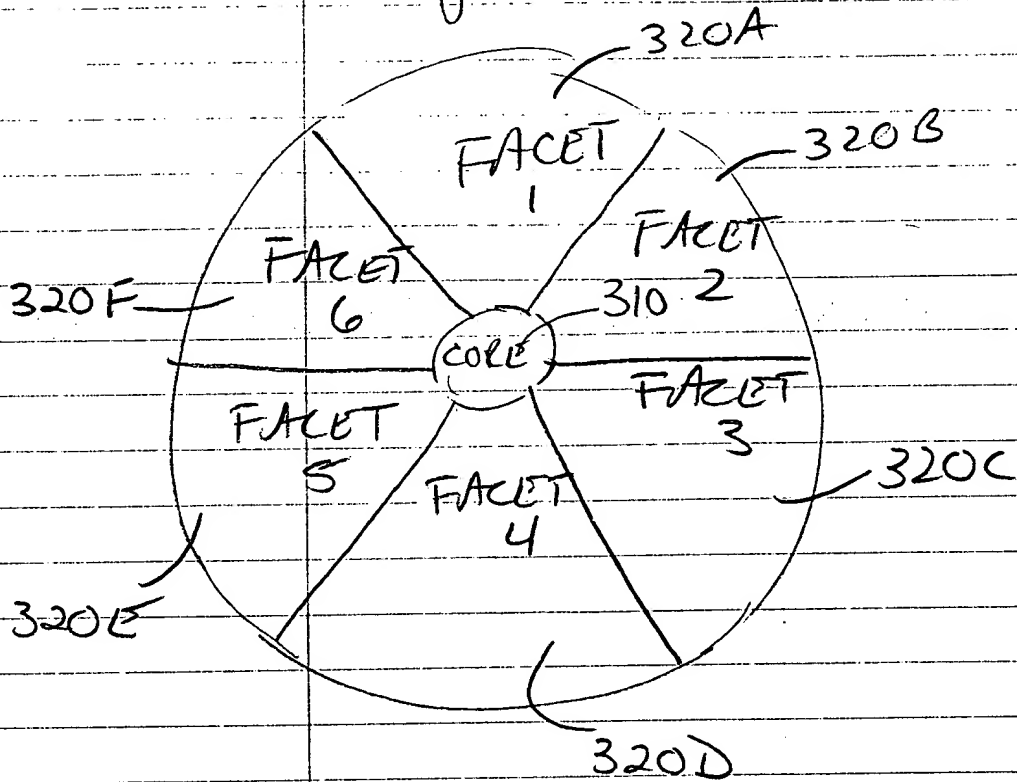 320A
FACET
1
320B
FACET
2
FACET
6
320F
310
CORE
FACET
3
FACET
5
FACET
4
320C
320E
320D